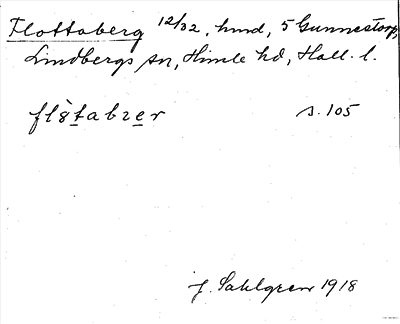 Flottaberg 12/32, hmd, 5 Gunnestorp,
Lindbergs sn, Himle hd, Hall. l.
flò̤tabzer s. 105
J. Sahlgren 1918